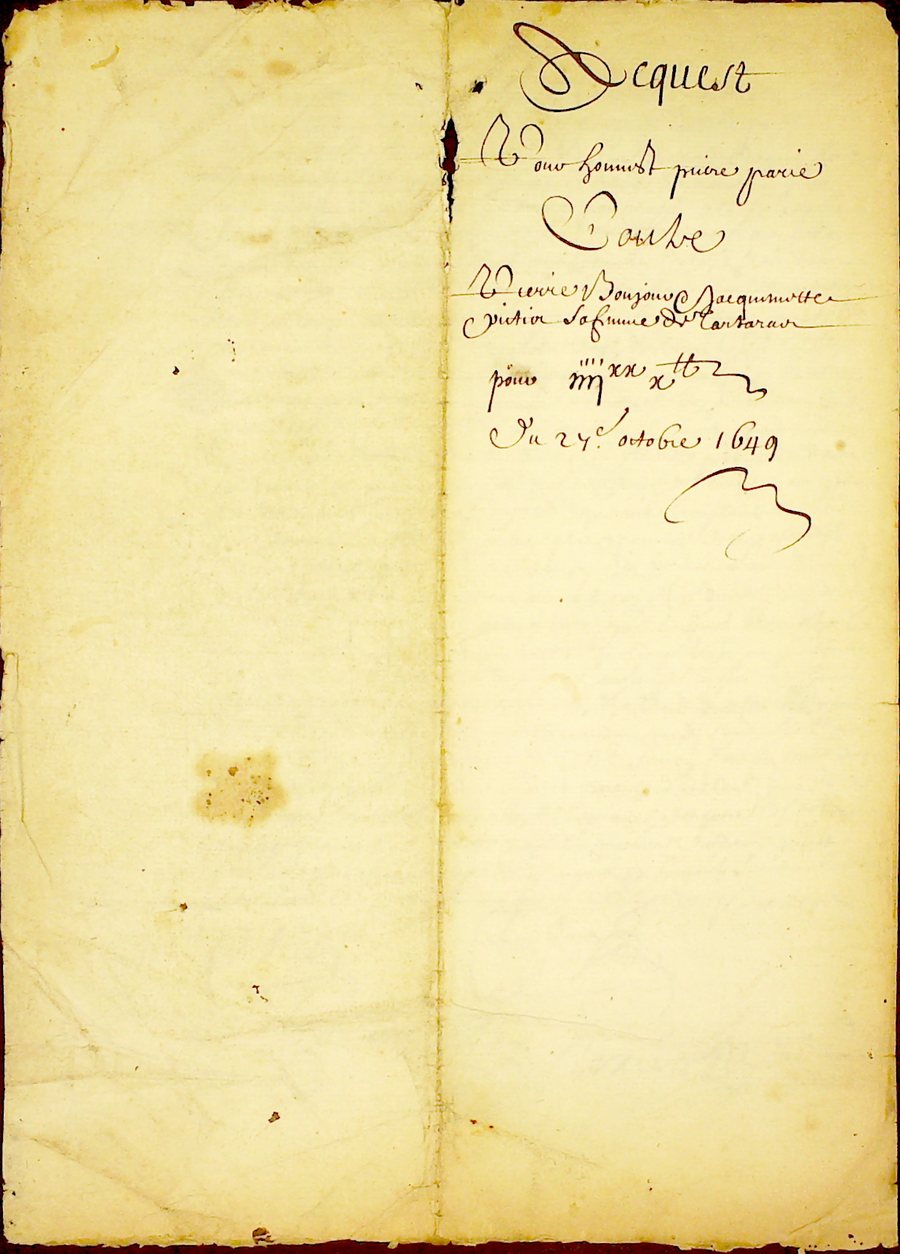 Acquest
Pour honnest pierre parie
Contre
Pierre Bonjour Jacquemette
sa femme de
pour iiii^xx x ^tt
Du 27e. octobre 1649